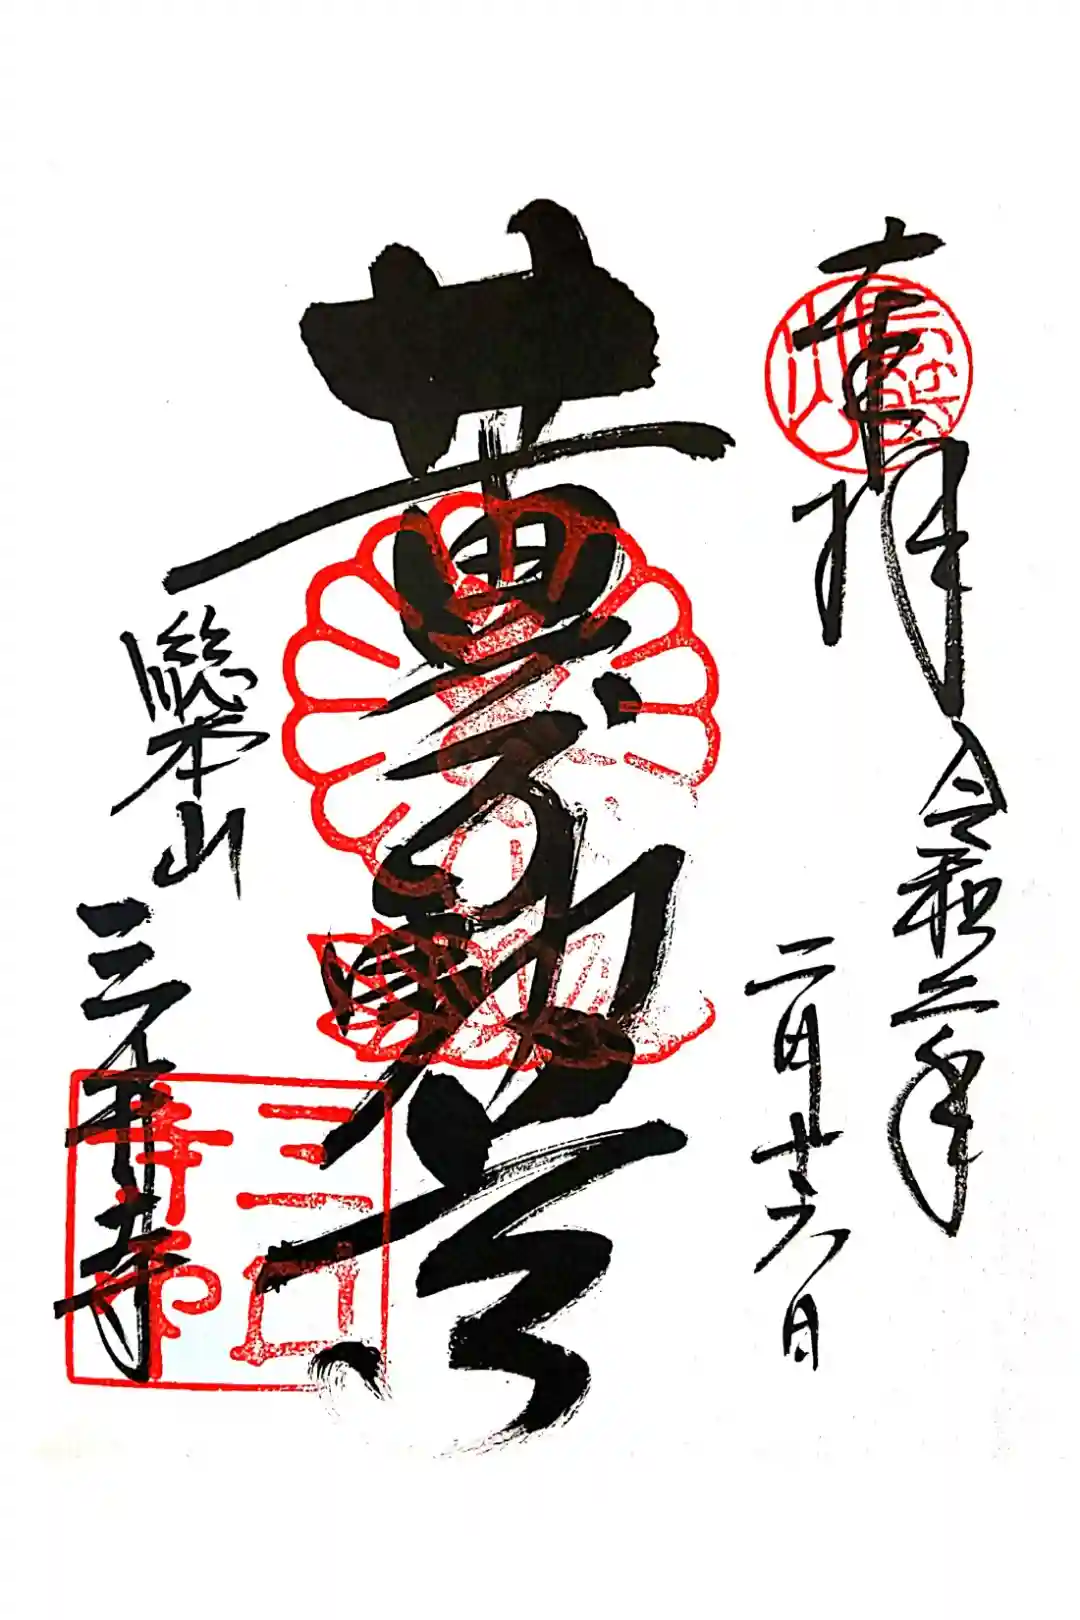 奉拝
令和二年
二月廿六日
黄不動尊
總本山
三井寺